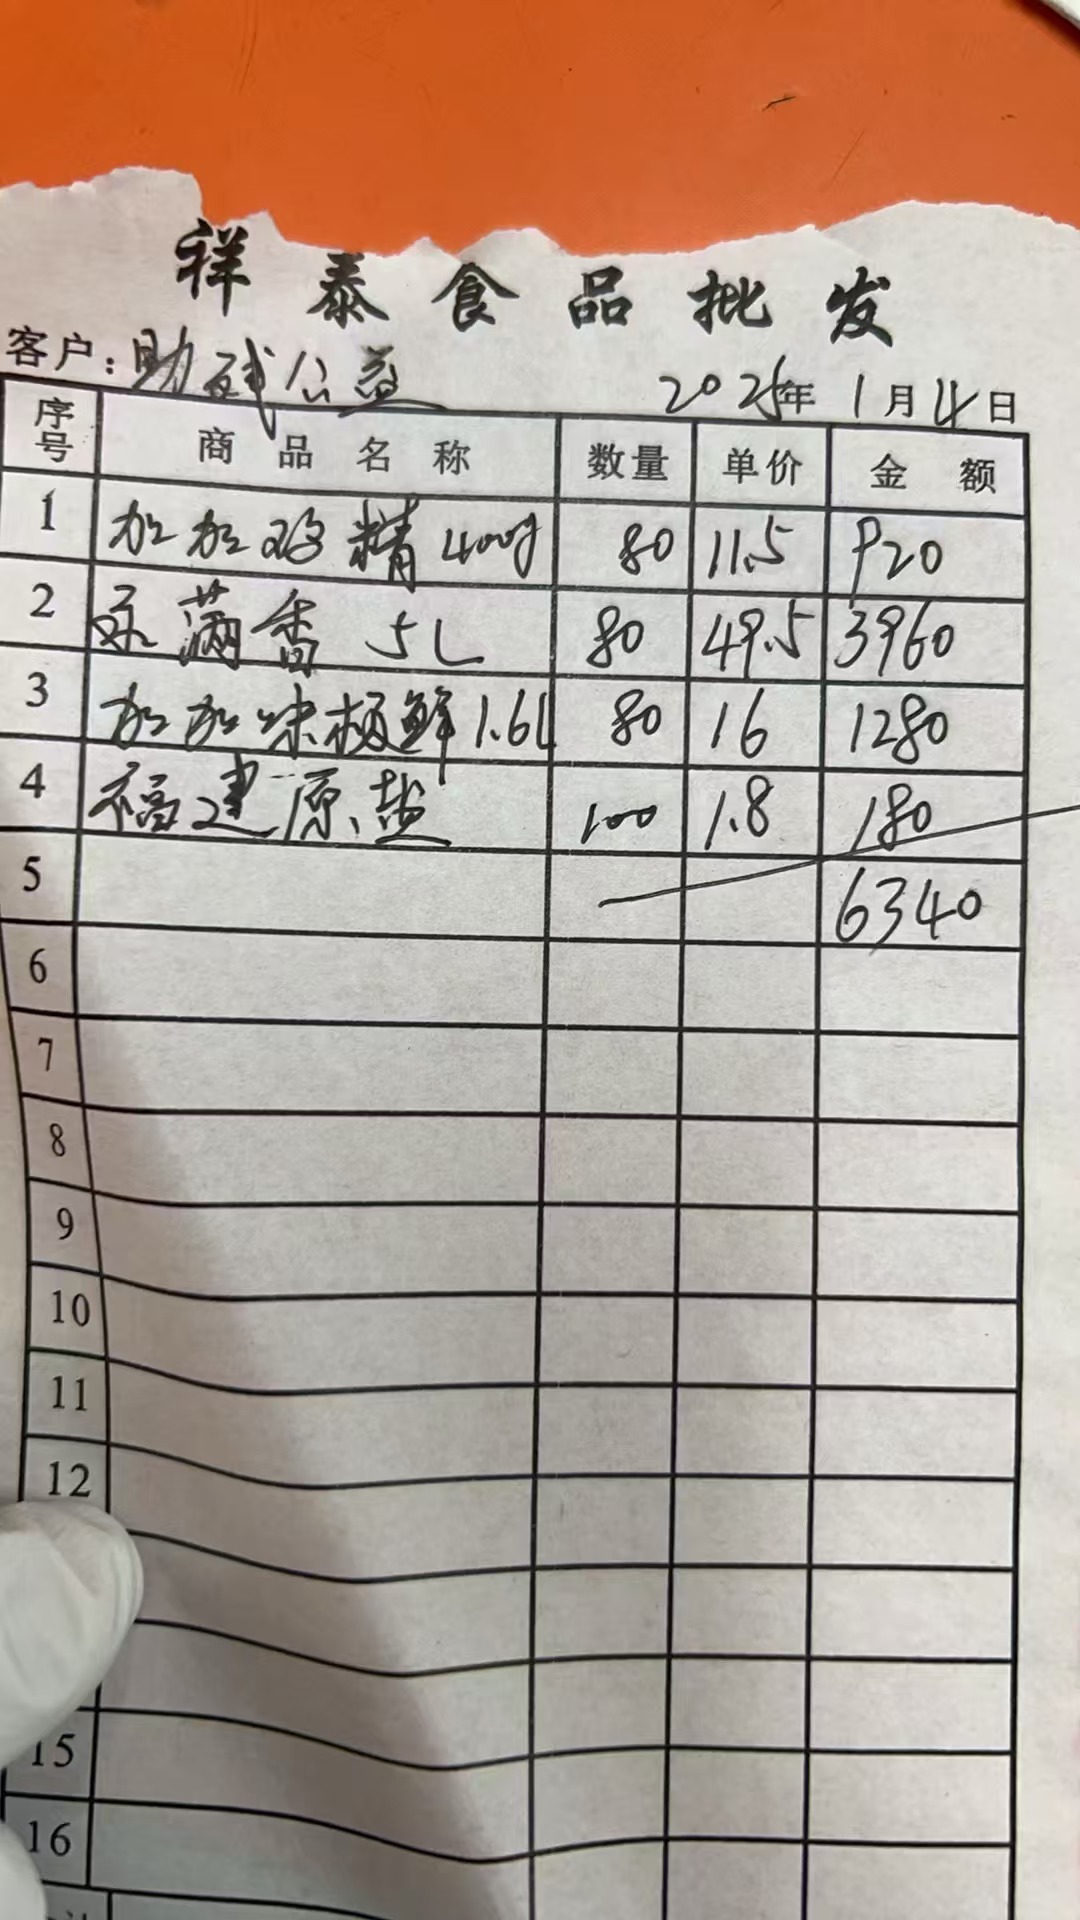 祥泰食品批发
客户：助残公益 2025年1月4日
序号 商品名称 数量 单价 金额
1 加加鸡精400g 80 11.5 920
2 满香 5L 80 49.5 3960
3 加加味极鲜1.6L 80 16 1280
4 福建原盐 100 1.8 180
5 6340
6
7
8
9
10
11
12
15
16